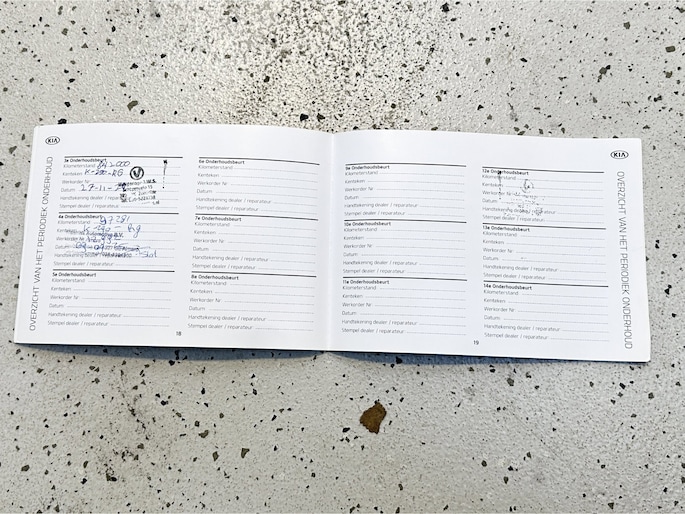 KIA
OVERZICHT VAN HET PERIODIEK ONDERHOUD
3e Onderhoudsbeurt
Kilometerstand
Kenteken
Werkorder Nr
Datum 27-11-
Handtekening dealer / reparateur
Stempel dealer / reparateur
4e Onderhoudsbeurt
Kilometerstand
Kenteken
Werkorder Nr
Datum
Handtekening
Stempel dealer / reparateur
5e Onderhoudsbeurt
Kilometerstand
Kenteken
Werkorder Nr
Datum
Handtekening dealer / reparateur
Stempel dealer / reparateur
6e Onderhoudsbeurt
Kilometerstand
Kenteken
Werkorder Nr
Datum
Handtekening dealer / reparateur
Stempel dealer / reparateur
7e Onderhoudsbeurt
Kilometerstand
Kenteken
Werkorder Nr
Datum
Handtekening dealer / reparateur
Stempel dealer / reparateur
8e Onderhoudsbeurt
Kilometerstand
Kenteken
Werkorder Nr
Datum
Handtekening dealer / reparateur
Stempel dealer / reparateur
18
9e Onderhoudsbeurt
Kilometerstand
Kenteken
Werkorder Nr
Datum
Handtekening dealer / reparateur
Stempel dealer / reparateur
10e Onderhoudsbeurt
Kilometerstand
Kenteken
Werkorder Nr
Datum
Handtekening dealer / reparateur
Stempel dealer / reparateur
11e Onderhoudsbeurt
Kilometerstand
Kenteken
Werkorder Nr
Datum
Handtekening dealer / reparateur
Stempel dealer / reparateur
12e Onderhoudsbeurt
Kilometerstand
Kenteken
Werkorder Nr
Datum
Handtekening dealer / reparateur
Stempel dealer / reparateur
13e Onderhoudsbeurt
Kilometerstand
Kenteken
Werkorder Nr
Datum
Handtekening dealer / reparateur
Stempel dealer / reparateur
14e Onderhoudsbeurt
Kilometerstand
Kenteken
Werkorder Nr
Datum
Handtekening dealer / reparateur
Stempel dealer / reparateur
19
KIA
OVERZICHT VAN HET PERIODIEK ONDERHOUD